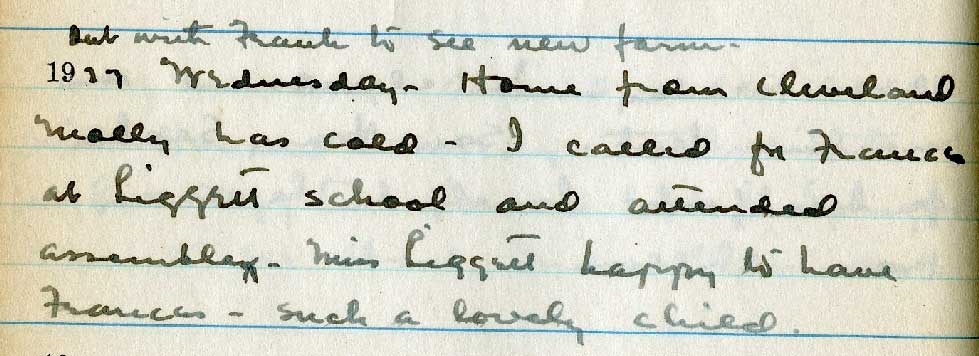 Out with Frank to see new farm.
1937 Wednesday - Home from Cleveland
Molly has cold - I called for Frances
at Liggett school and attended
assembly - Miss Liggett happy to have
Frances - such a lovely child.